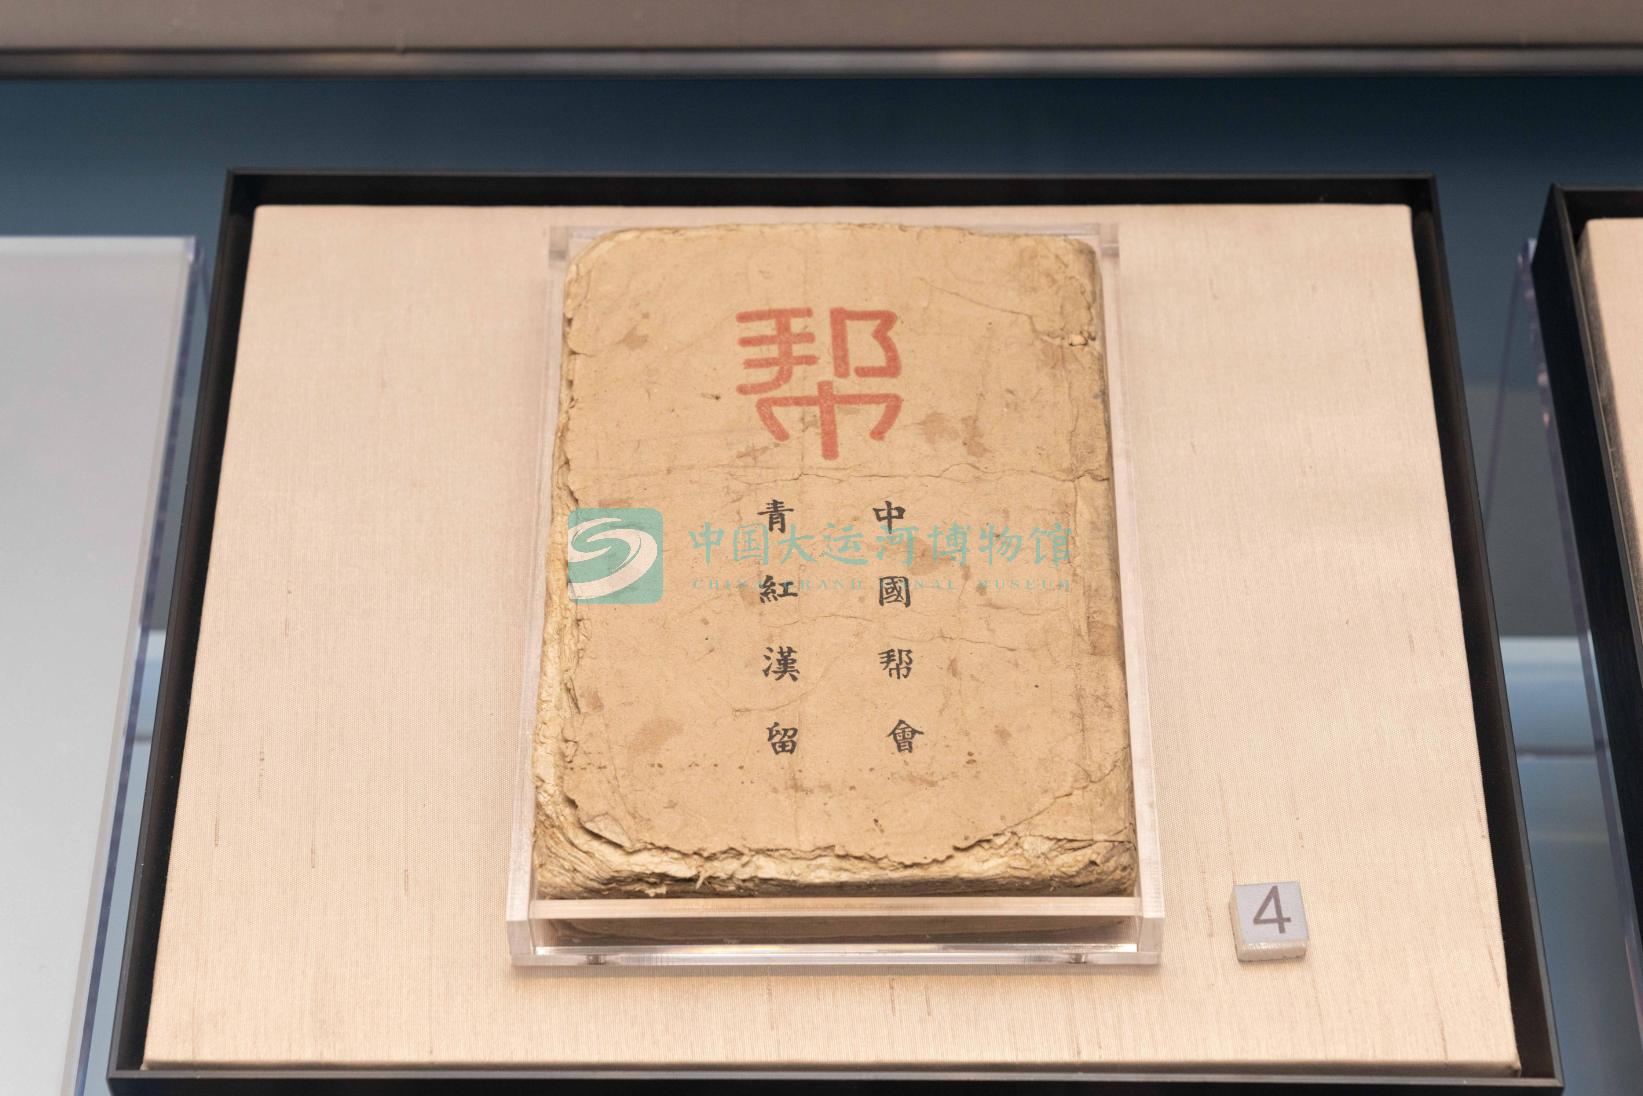 帮
中國帮會
青紅漢留
中国大运河博物馆
CHINA GRAND CANAL MUSEUM
4